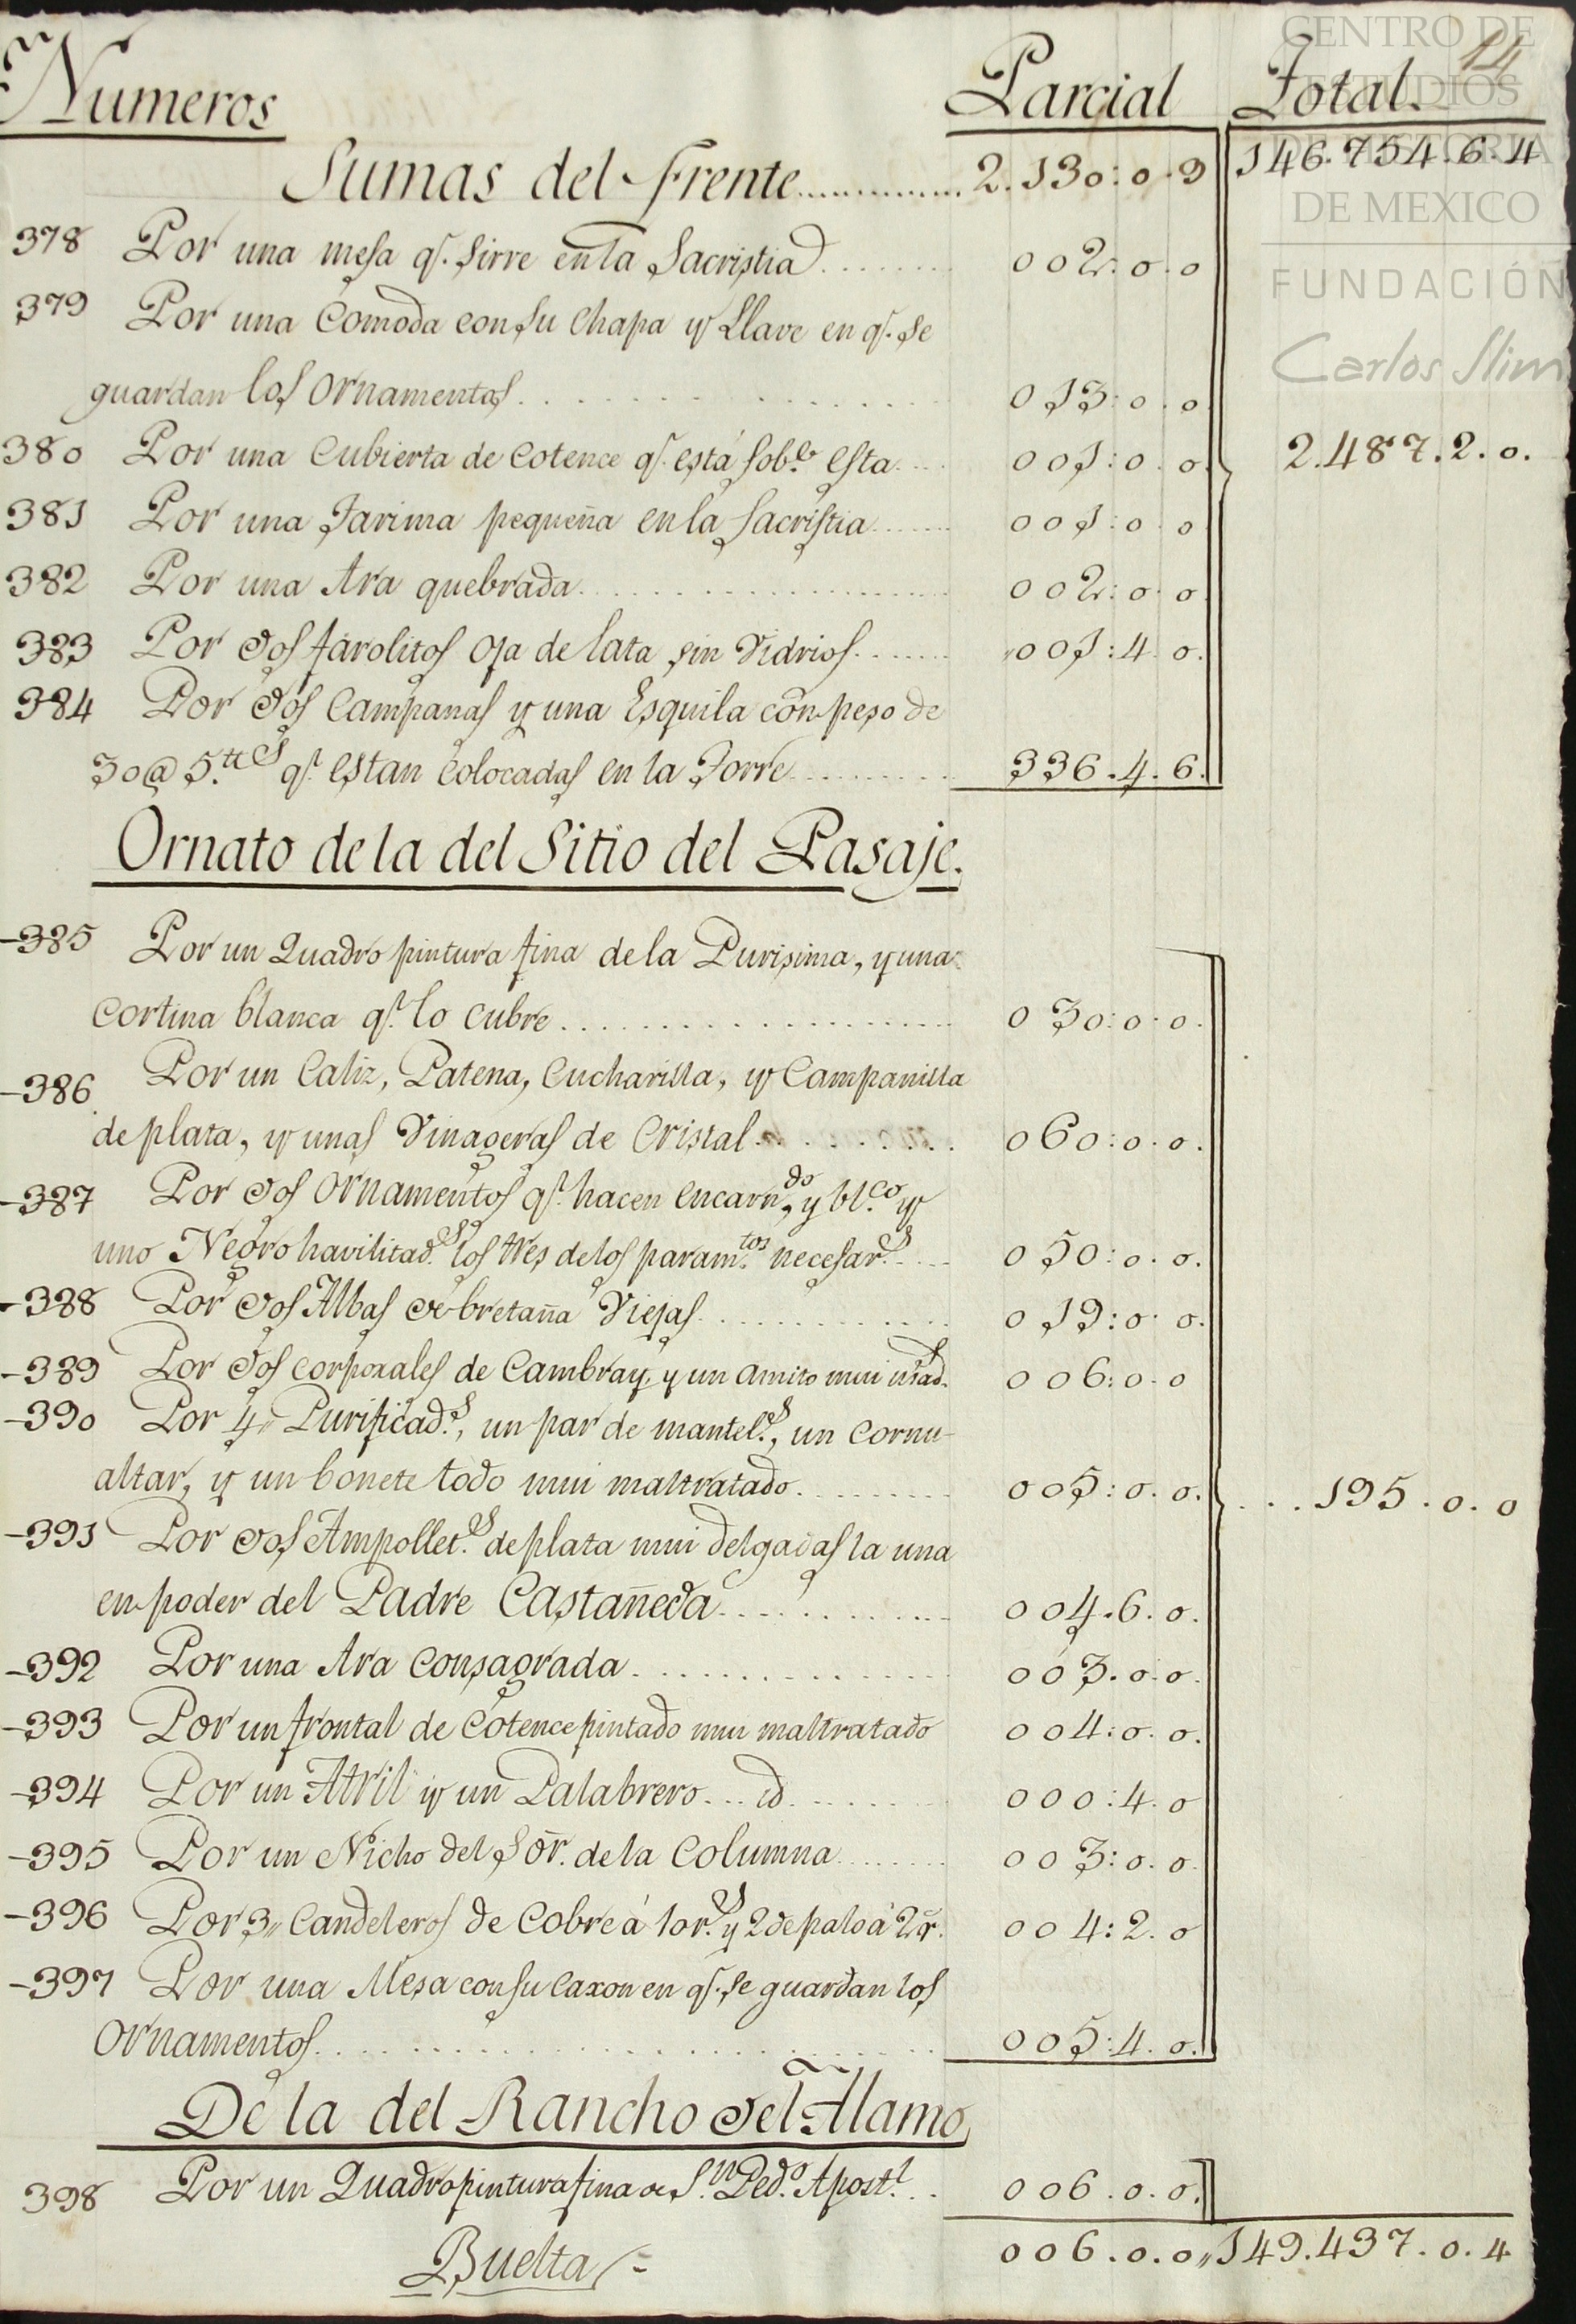 14
Numeros Parcial Total.
Sumas del Frente.............. 2.130:0.9 146.754.6.4
378 Por una mesa q.e sirve en la Sacristia........ 002:0.0
379 Por una Comoda con su Chapa y Llave en q.e se
guardan los Ornamentos................. 013:0.0
380 Por una Cubierta de Cotence q.e está sob.e esta.... 001:0.0. 2.487.2.0.
381 Por una Tarima pequeña en la Sacristia...... 001:0.0
382 Por una Ara quebrada.................... 002:0.0.
383 Por dos farolitos oja de lata sin Vidrios....... 001:4.0.
384 Por dos Campanas y una Esquila con peso de
30@ 5.tt es q.e estan colocadas en la Torre......... 336.4.6.
Ornato de la del Sitio del Pasaje.
-385 Por un Quadro pintura fina de la Purisima, y una
Cortina blanca q.e lo cubre.................... 030:0.0.
-386 Por un Caliz, Patena, Cucharilla, y Campanilla
de plata, y unas Vinageras de Cristal......... 060:0.0.
-387 Por dos Ornamentos q.e hacen encarn.do, y bl.co y
uno Negro havilitad.s los tres de los param.tos necesar.s.... 050:0.0.
-388 Por dos Albas de bretaña Viejas............. 019:0.0.
-389 Por dos corporales de Cambray, y un amito mui usad.s 006:0.0
-390 Por 4,, Purificad.s, un par de mantel.s, un cornu-
altar, y un bonete todo mui maltratado......... 005:0.0. ...195.0.0
-391 Por dos Ampollet.s de plata mui delgadas la una
en poder del Padre Castañeda............ 004.6.0.
-392 Por una Ara Consagrada............... 003.0.0.
-393 Por un frontal de Cotence pintado mui maltratado 004:0.0.
-394 Por un Atril y un Palabrero... id........ 000:4.0
-395 Por un Nicho del Sōr. de la Columna....... 003:0.0.
-396 Por 3,, Candeleros de Cobre á 10 r.s y 2 de palo á 2 r̃. 004:2.0
-397 Por una Mesa con su Caxon en q.e se guardan los
Ornamentos..................... 005:4.0.
De la del Rancho del Alamo
398 Por un Quadro pintura fina de S.n Ped.o Apost.l.. 006.0.0.
Buelta = 006.0.0,, 149.437.0.4
CENTRO DE
ESTUDIOS
DE HISTORIA
DE MEXICO
FUNDACIÓN
Carlos Slim